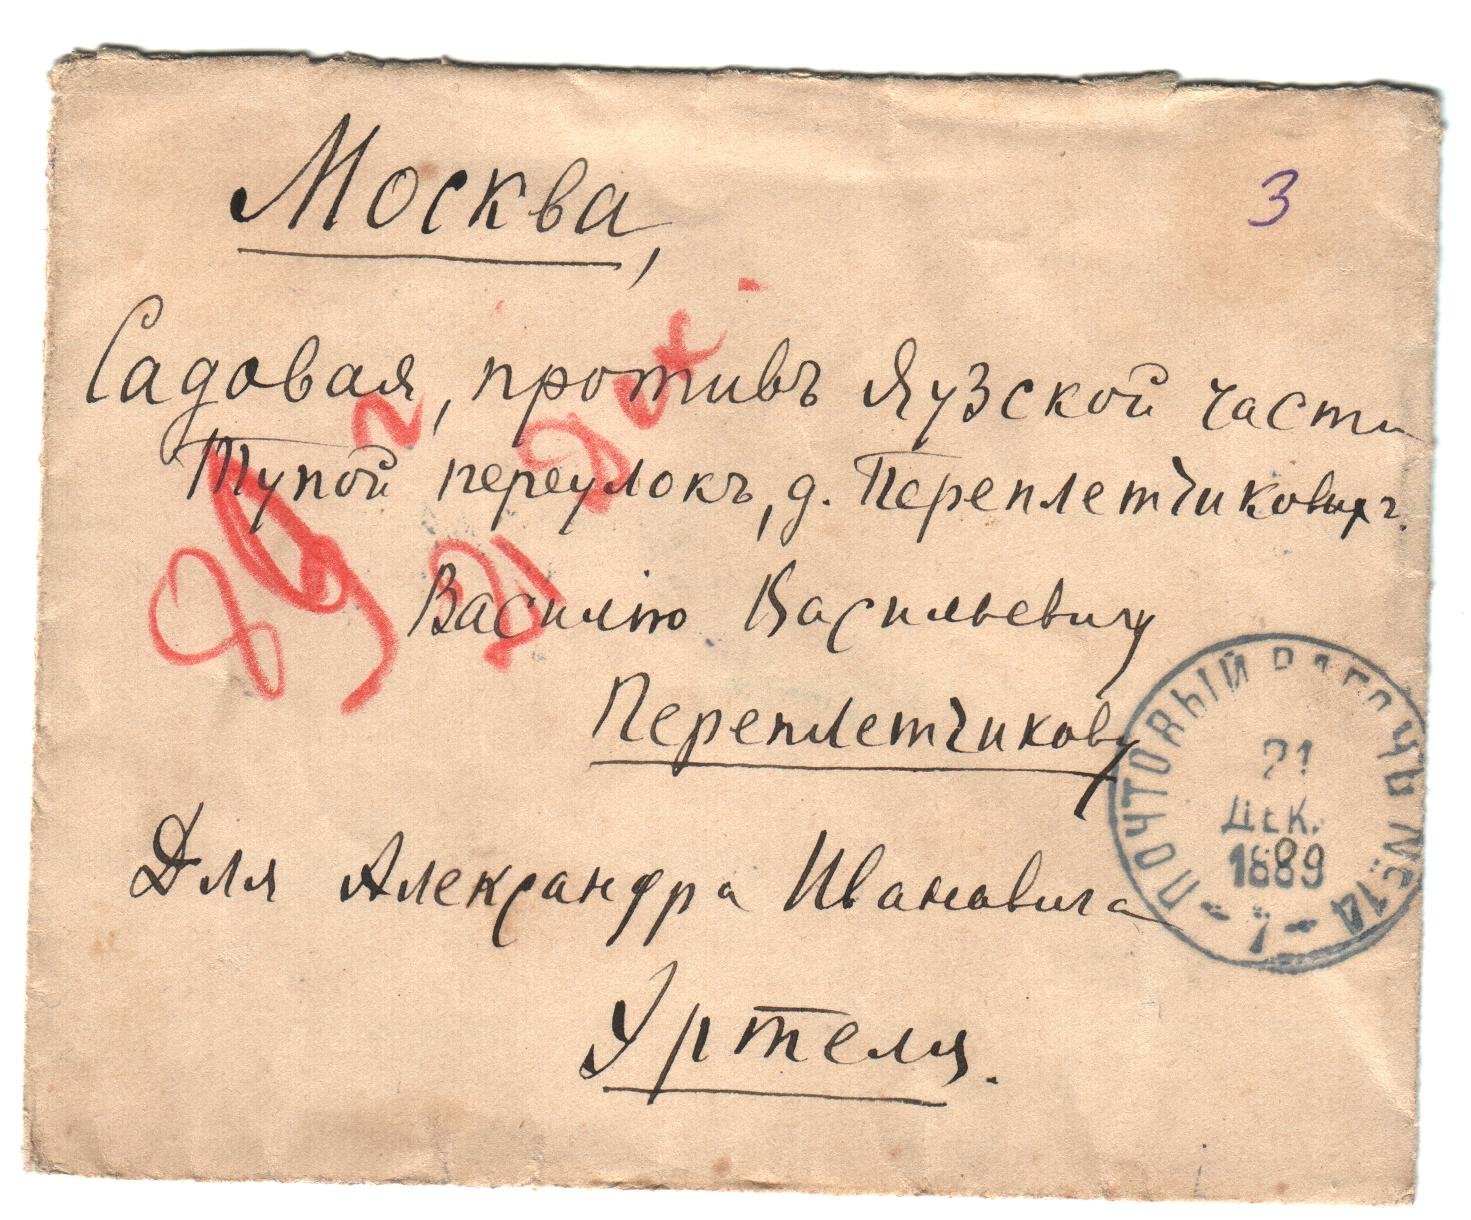 Москва,
3
Садовая, противъ Яузской части
Тупой переулокъ, д. Переплетчиковыхъ.
Василію Васильевичу
Переплетчикову
Для Александра Ивановича
Уртеля.
ПОЧТОВЫЙ ВАГОНЪ №
21
ДЕК.
1889
89 г
21 Дек